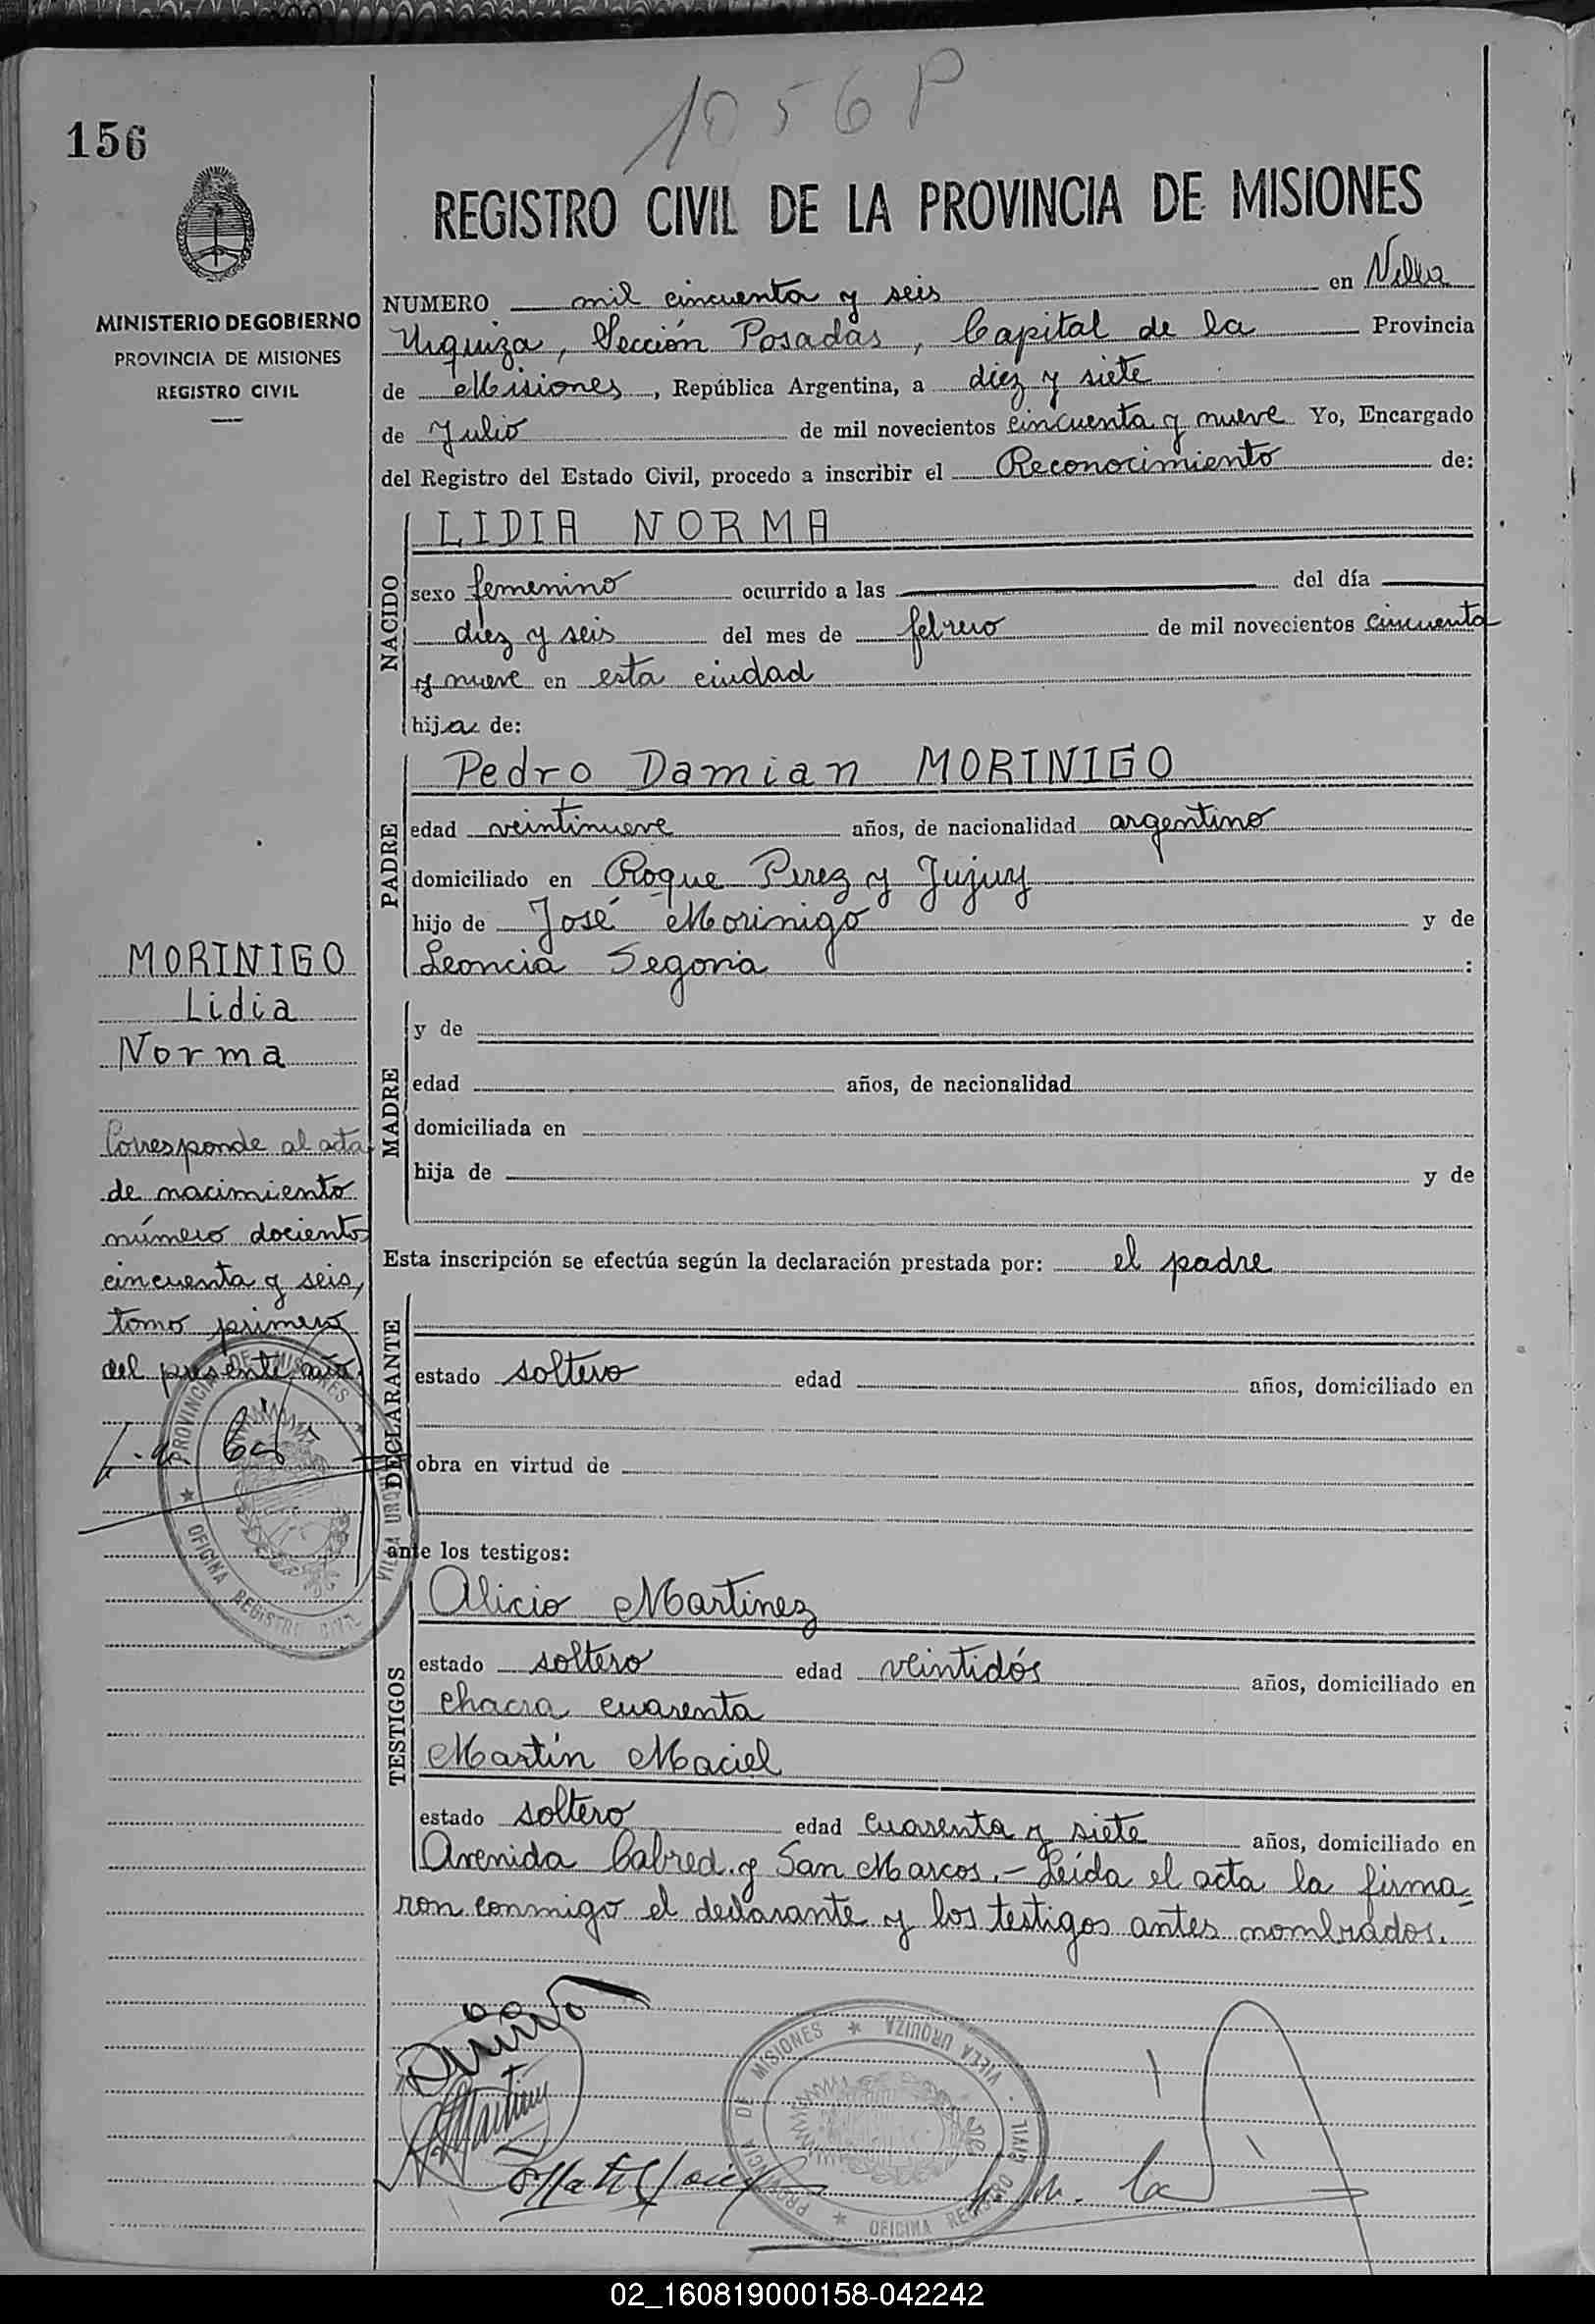 1056 P
156
REGISTRO CIVIL DE LA PROVINCIA DE MISIONES
MINISTERIO DE GOBIERNO
PROVINCIA DE MISIONES
REGISTRO CIVIL
NUMERO mil cincuenta y seis en Villa
Urquiza, Sección Posadas, Capital de la Provincia
de Misiones, República Argentina, a diez y siete
de Julio de mil novecientos cincuenta y nueve Yo, Encargado
del Registro del Estado Civil, procedo a inscribir el Reconocimiento de:
NACIDO
LIDIA NORMA
sexo femenino ocurrido a las del día
diez y seis del mes de febrero de mil novecientos cincuenta
y nueve en esta ciudad
hija de:
PADRE
Pedro Damian MORINIGO
edad veintinueve años, de nacionalidad argentino
domiciliado en Roque Perez y Jujuy
hijo de José Morinigo y de
Leoncia Segovia :
MORINIGO
Lidia
Norma
Corresponde al acta
de nacimiento
número dociento
cincuenta y seis,
tomo primero
del presente año.
MADRE
y de
edad años, de nacionalidad
domiciliada en
hija de y de
Esta inscripción se efectúa según la declaración prestada por: el padre
DECLARANTE
estado soltero edad años, domiciliado en
obra en virtud de
PROVINCIA DE MISIONES
VILLA URQUIZA
OFICINA REGISTRO CIVIL
ante los testigos:
TESTIGOS
Alicio Martinez
estado soltero edad veintidós años, domiciliado en
chacra cuarenta
Martín Maciel
estado soltero edad cuarenta y siete años, domiciliado en
Avenida Cabred y San Marcos.- Leída el acta la firma=
ron conmigo el declarante y los testigos antes nombrados.
AMartinez
PROVINCIA DE MISIONES * VILLA URQUIZA
OFICINA REGISTRO CIVIL
02_160819000158-042242